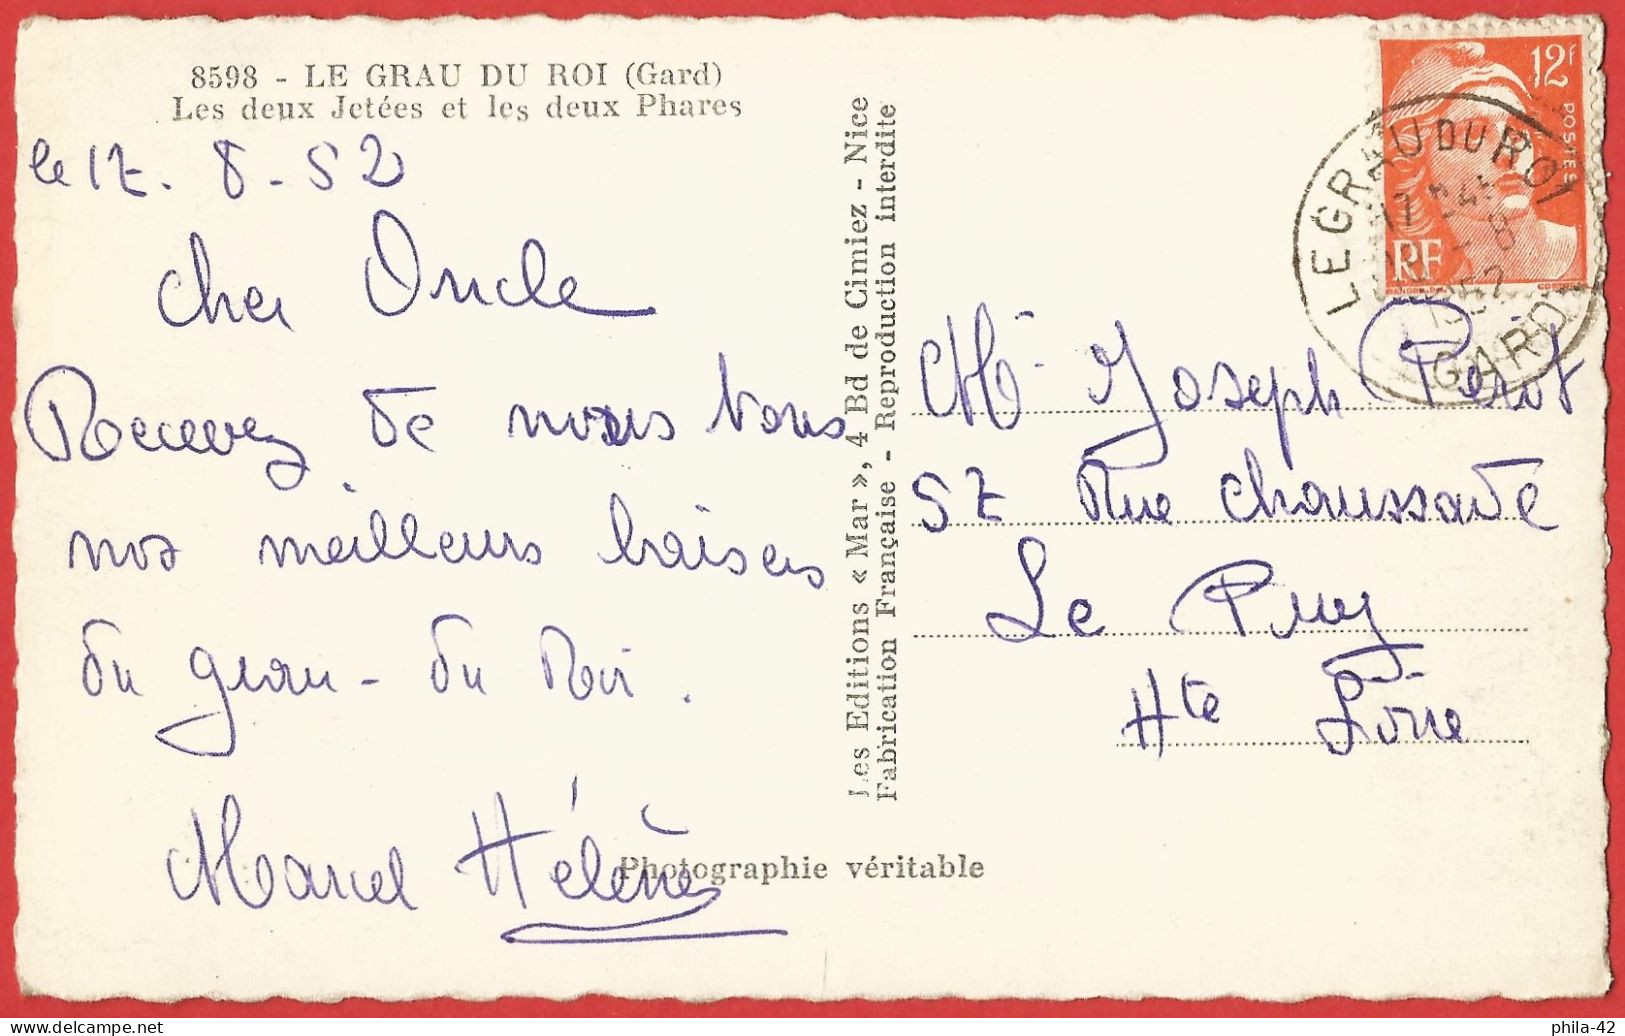 8598 - LE GRAU DU ROI (Gard)
Les deux Jetées et les deux Phares
le 17. 8. 52
Cher Oncle
Recevez de nous tous
nos meilleurs baisers
du grau-du Roi.
Marcel Hélène
Photographie véritable
Les Editions « Mar », 4 Bd de Cimiez - Nice
Fabrication Française - Reproduction interdite
12f
POSTES
RF
LE GRAU DU ROI
GARD
Mr Joseph Perot
57 Rue Chaussade
Le Puy
Hte Loire
phila-42